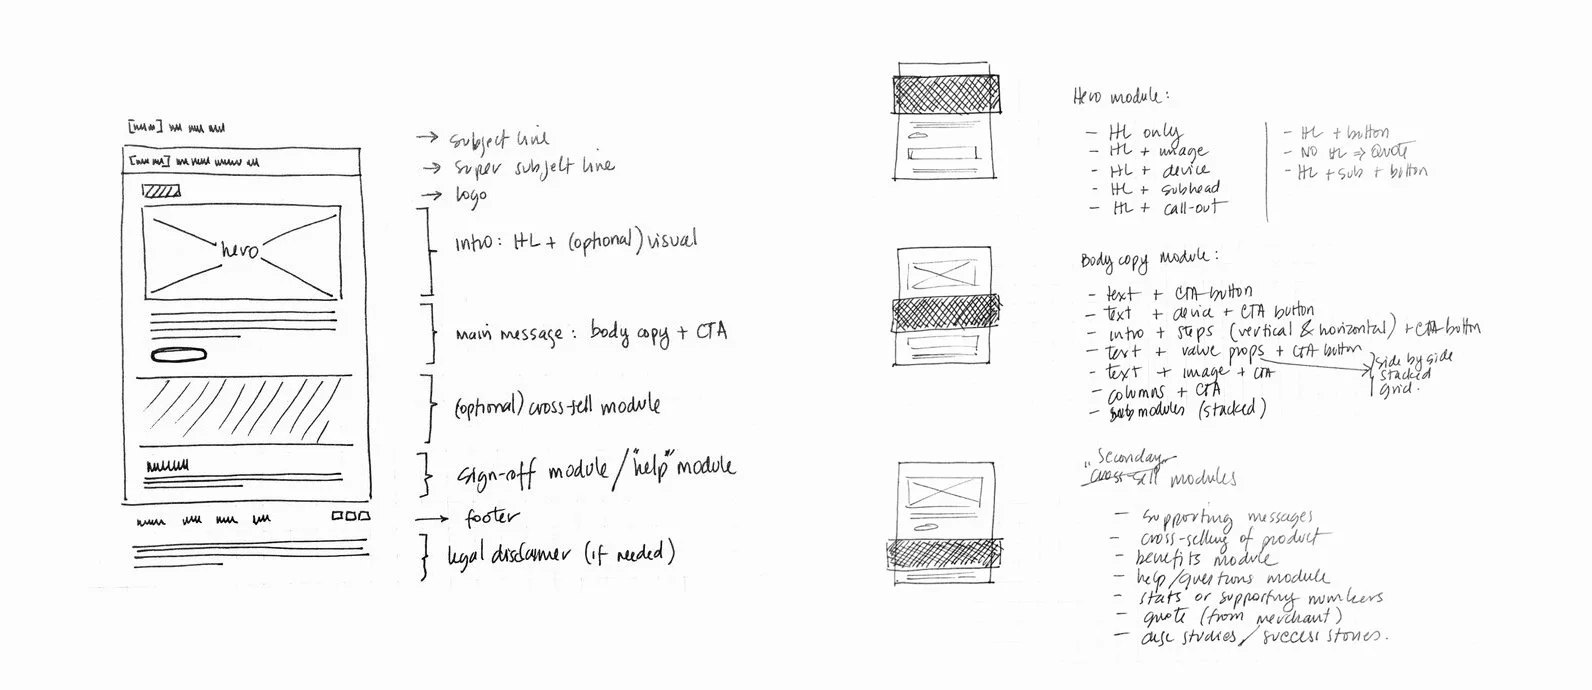 → subject line
→ super subject line
→ logo
hero
intro: HL + (optional) visual
main message: body copy + CTA
(optional) cross-sell module
sign-off module / "help" module
→ footer
legal disclaimer (if needed)
Hero module:
- HL only
- HL + image
- HL + device
- HL + subhead
- HL + call-out
- HL + button
- NO HL ⇒ Quote
- HL + sub + button
Body copy module:
- text + CTA button
- text + device + CTA button
- intro + steps (vertical & horizontal) + CTA button
- text + value props + CTA button
side by side
stacked
grid.
- text + image + CTA
- columns + CTA
- sub modules (stacked)
"Seconday
cross-sell modules
- supporting messages
- cross-selling of product
- benefits module
- help/questions module
- stats or supporting numbers
- quote (from merchant)
- case studies / success stories.